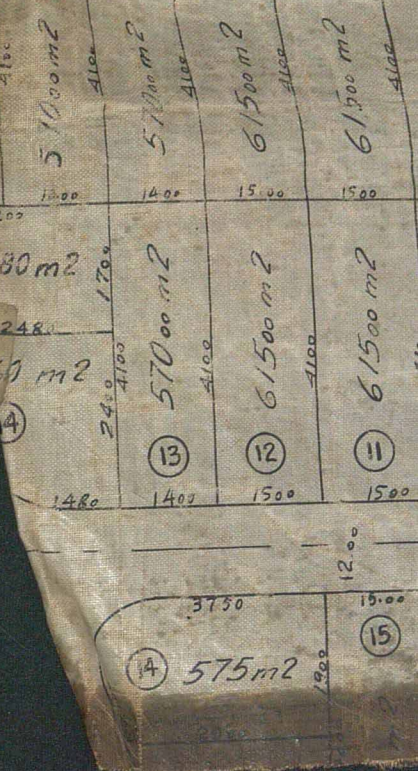 4100
57000m2
4100
57000m2
4100
61500m2
4100
61500m2
4100
1400
1400
15.00
1500
80 m2
1700
2480
m2
2400
4100
57000m2
4100
61500m2
4100
61500m2
13
12
11
1480
1400
1500
1500
12.00
3750
15.00
14
575m2
1900
15
m2